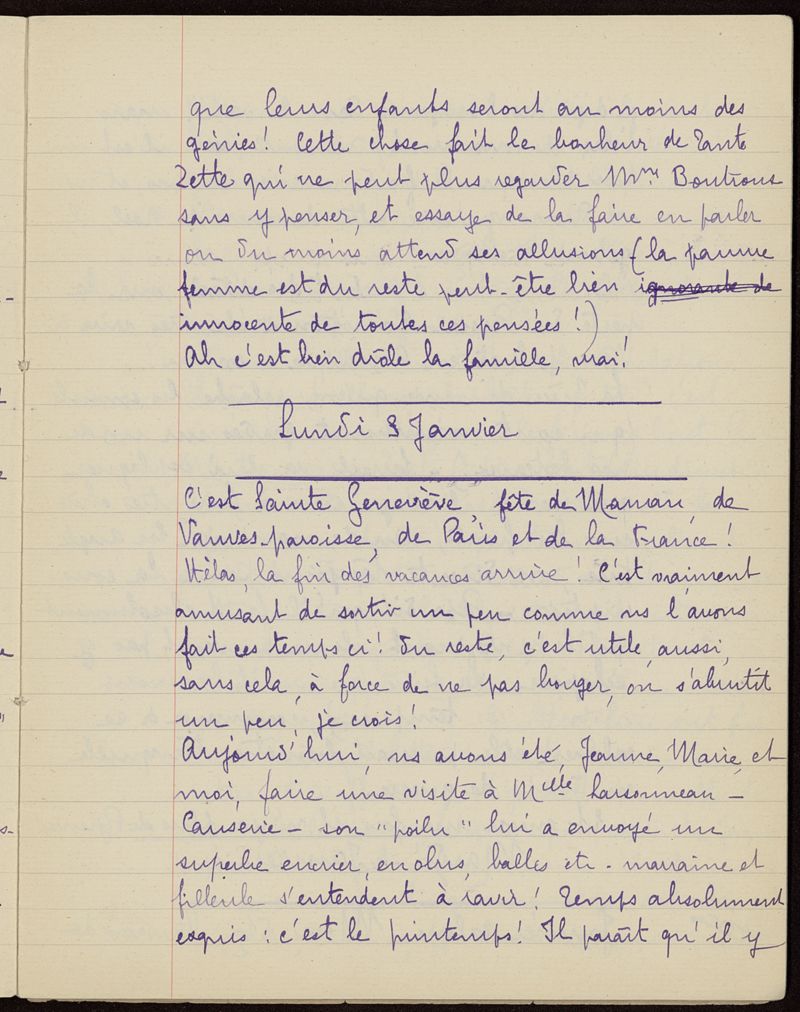 que leurs enfants seront au moins des
génies! Cette chose fait le bonheur de Tante
Zette qui ne peut plus regarder Mme Boutroux
sans y penser, et essaye de la faire en parler
ou du moins attend ses allusions (la pauvre
femme est du reste peut-être bien ignorante de
innocente de toutes ces pensées!)
Ah c'est bien drôle la famille, mai!
Lundi 3 Janvier
C'est Sainte Geneviève, fête de Maman, de
Vanves-paroisse, de Paris et de la France!
Hélas, la fin des vacances arrive! C'est vraiment
amusant de sortir un peu comme ns l'avons
fait ces temps ci! Du reste, c'est utile, aussi,
sans cela, à force de ne pas bouger, on s'abrutit
un peu, je crois!
Aujourd'hui, ns avons été, Jeanne, Marie, et
moi, faire une visite à Melle Larsonneau -
Causerie - son "poilu" lui a envoyé un
superbe encrier, en obus, balles etc - marraine et
filleule s'entendent à ravir! Temps absolument
exquis: c'est le printemps! Il paraît qu'il y